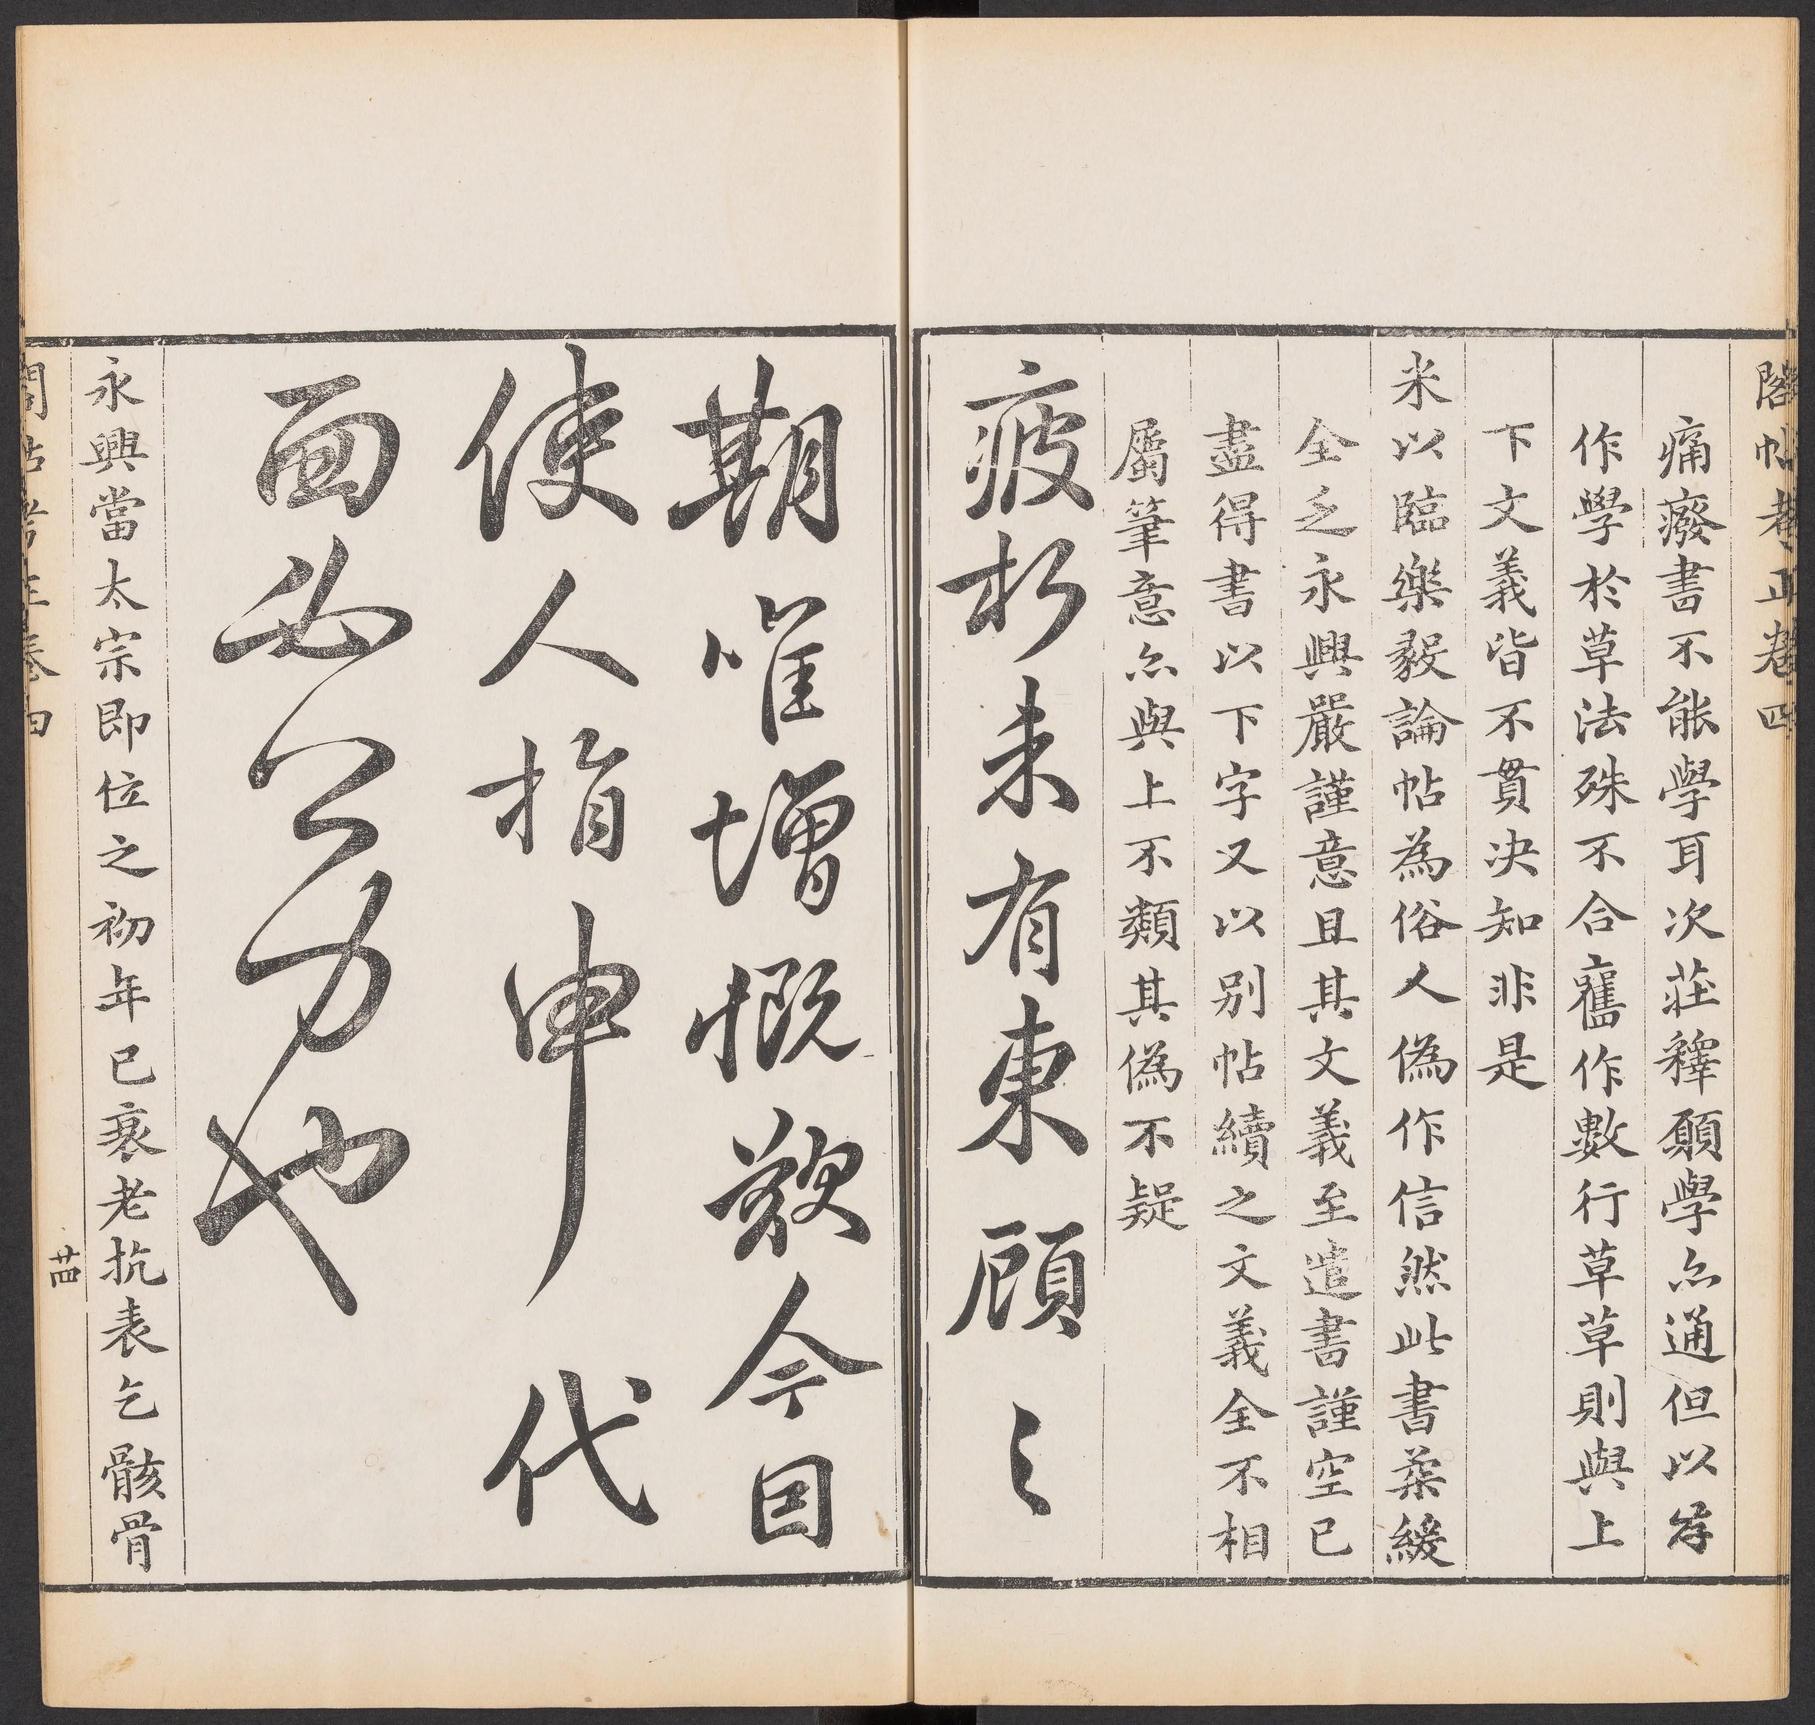 閣帖考正卷四
痛癈書不能學耳次莊釋願學亦通但以等
作學於草法殊不合舊作數行草草則與上
下文義皆不貫决知非是
米以臨樂毅論帖為俗人偽作信然此書柔緩
全乏永興嚴謹意且其文義至遣書謹空已
盡得書以下字又以别帖續之文義全不相
屬筆意亦與上不類其偽不疑
疲朽未有東顧之
期唯增慨歎今因
使人指申代
面必公乃也
永興當太宗即位之初年已衰老抗表乞骸骨
閣帖考正卷四
卄四